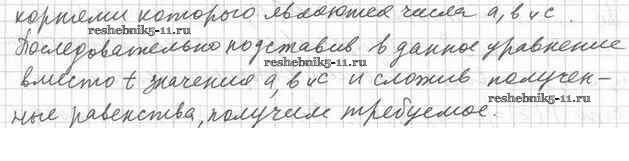 корнями которого являются числа a, b и c.
reshebnik5-11.ru
Последовательно подставив в данное уравнение
reshebnik5-11.ru
вместо t значения a, b и c и сложив получен-
reshebnik5-11.ru
ные равенства, получим требуемое.
reshebnik5-11.ru